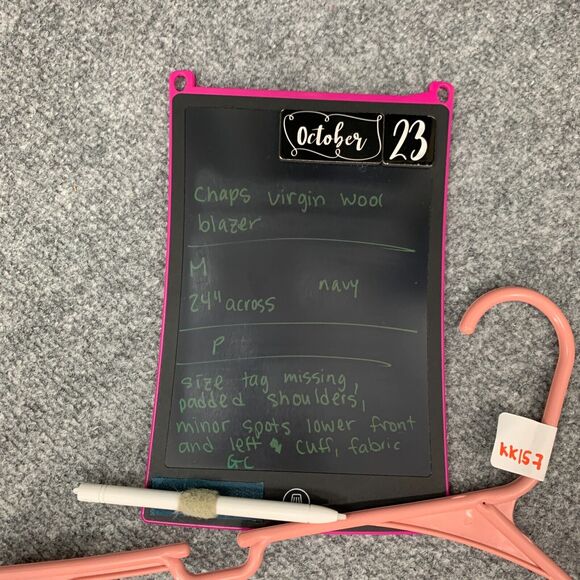 October 23
Chaps virgin wool
blazer
M
navy
24" across
P
size tag missing,
padded shoulders,
minor spots lower front
and left cuff, fabric
GC
KK157